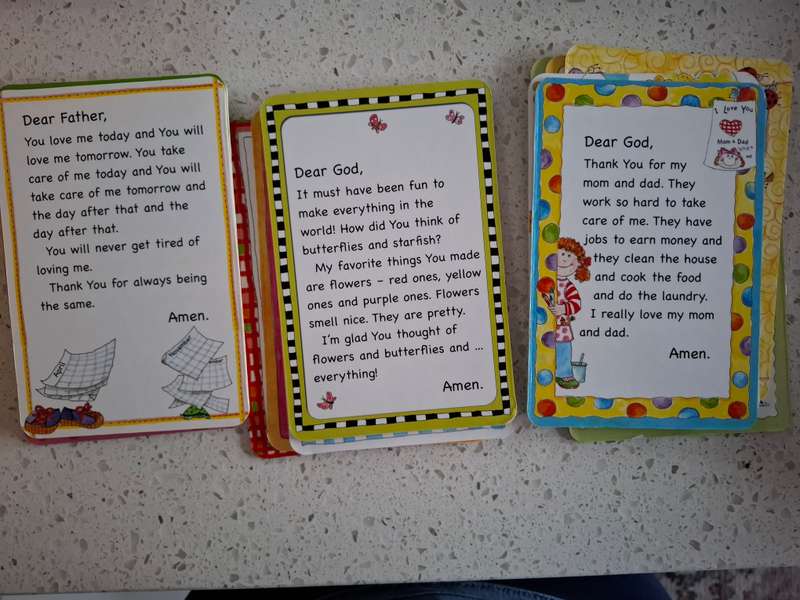 Dear Father,
You love me today and You will
love me tomorrow. You take
care of me today and You will
take care of me tomorrow and
the day after that and the
day after that.
You will never get tired of
loving me.
Thank You for always being
the same.
Amen.
Dear God,
It must have been fun to
make everything in the
world! How did You think of
butterflies and starfish?
My favorite things You made
are flowers – red ones, yellow
ones and purple ones. Flowers
smell nice. They are pretty.
I'm glad You thought of
flowers and butterflies and ...
everything!
Amen.
I Love You
Mom & Dad
Dear God,
Thank You for my
mom and dad. They
work so hard to take
care of me. They have
jobs to earn money and
they clean the house
and cook the food
and do the laundry.
I really love my mom
and dad.
Amen.